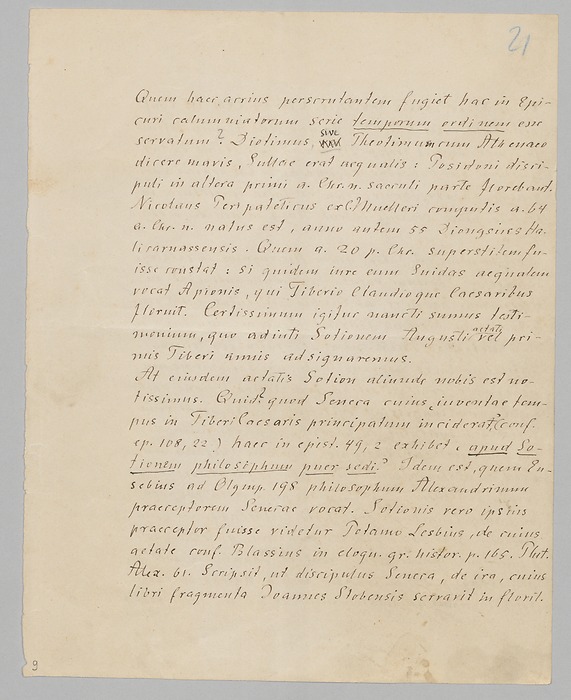 21
Quem haec acrius perscrutantem fugiet hac in Epi-
curi calumniatorum serie temporum ordinem esse
servatum? Diotimus, sive Theotimum cum Athenaeo
dicere mavis, Sullae erat aequalis: Posidoni disci-
puli in altera primi a. Chr. n. saeculi parte florebant.
Nicolaus Peripateticus ex C. Muelleri computis a. 64
a. Chr. n. natus est, anno autem 55 Dionysius Ha-
licarnassensis. Quem a. 20 p. Chr. superstitem fu-
isse constat: si quidem iure eum Suidas aequalem
vocat Apionis, qui Tiberio Claudioque Caesaribus
floruit. Certissimum igitur nancti sumus testi-
monium, quo adiuti Sotionem Augusti aetati vel pri-
mis Tiberi annis adsignaremus.
At eiusdem aetatis Sotion aliunde nobis est no-
tissimus. Quid? quod Seneca cuius iuventae tem-
pus in Tiberi Caesaris principatum inciderat, (conf.
ep. 108, 22) haec in epist. 49, 2 exhibet: apud So-
tionem philosophum puer sedi? Idem est, quem Eu-
sebius ad Olymp. 198 philosophum Alexandrinum
praeceptorem Senecae vocat. Sotionis vero ipsius
praeceptor fuisse videtur Potamo Lesbius, de cuius
aetate conf. Blassius in eloqu. gr. histor. p. 165. Plut.
Alex. 61. Scripsit, ut discipulus Seneca, de ira, cuius
libri fragmenta Ioannes Stobensis servavit in floril.
9